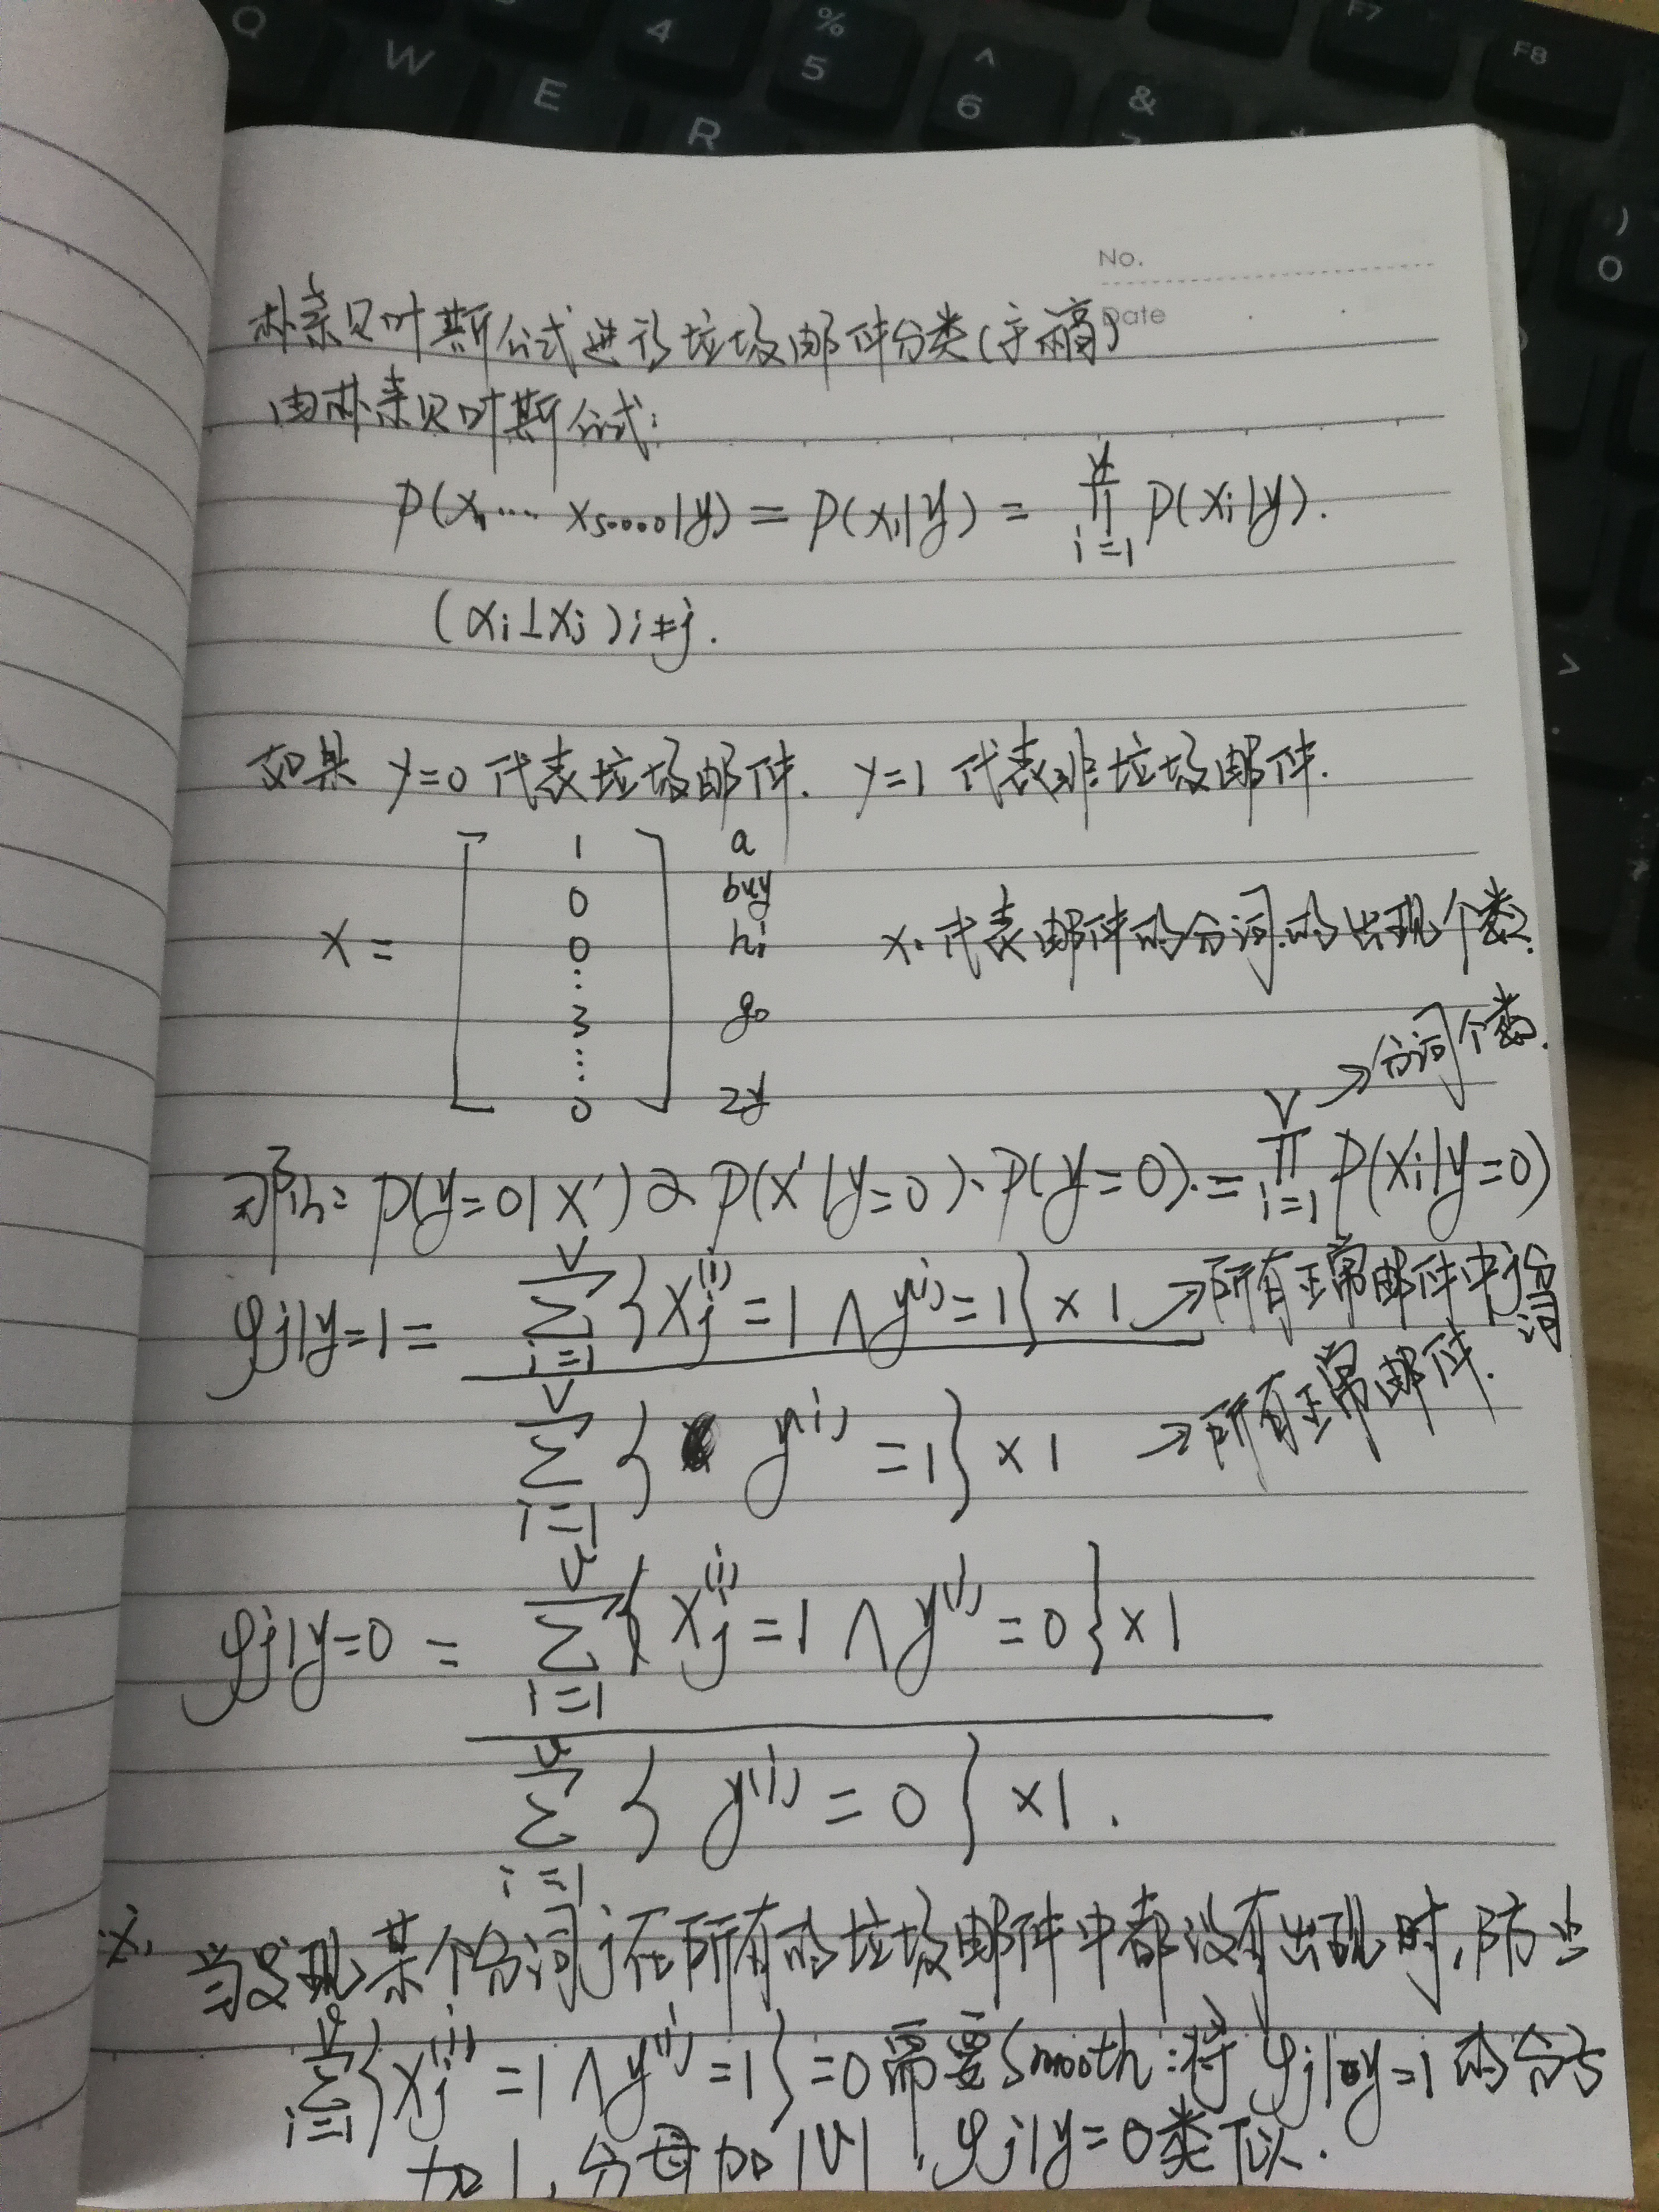 Q W E R 4 % 5 ^ 6 & F7 F8 ) 0 >
No.
Date
朴素贝叶斯公式进行垃圾邮件分类(于丽)
由朴素贝叶斯公式:
P(x₁…x₅₀₀₀₀|y) = P(x₁|y) = ∏_{i=1}^{V} P(xᵢ|y).
(xᵢ⊥xⱼ) i≠j.
如果 y=0 代表垃圾邮件. y=1 代表非垃圾邮件.
x = [1 0 0 ⋮ 3 ⋮ 0] a buy hi go zy
x. 代表邮件的分词的出现个数.
→分词个数.
P(y=0|x') ∝ P(x'|y=0)·P(y=0).=∏_{i=1}^{V} P(xᵢ|y=0)
φj|y=1 = ∑_{i=1}^{V} {xⱼ⁽ⁱ⁾=1 ∧ y⁽ⁱ⁾=1} ×1 →所有正常邮件中j分词
∑_{i=1}^{V} { y⁽ⁱ⁾=1} ×1 →所有正常邮件.
φj|y=0 = ∑_{i=1}^{V} {xⱼ⁽ⁱ⁾=1 ∧ y⁽ⁱ⁾=0} ×1
∑_{i=1}^{V} { y⁽ⁱ⁾=0 } ×1.
当发现某个分词j在所有的垃圾邮件中都没有出现时,防止
∑_{i=1}^{V} {xⱼ⁽ⁱ⁾=1 ∧ y⁽ⁱ⁾=1}=0 需要Smooth:将φj|y=1 的分子
加1,分母加|V|,φj|y=0类似.